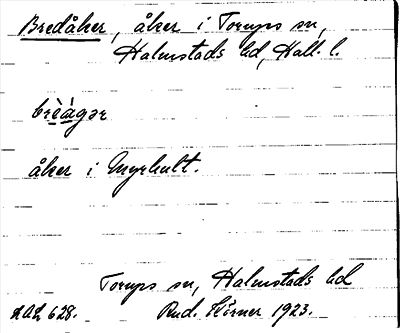 Bredåker, åker i Torups sn,
Halmstads hd, Hall. l.
brèàgər
åker i Myrhult.
Torups sn, Halmstads hd
AAL 628. Rud. Körner 1923.